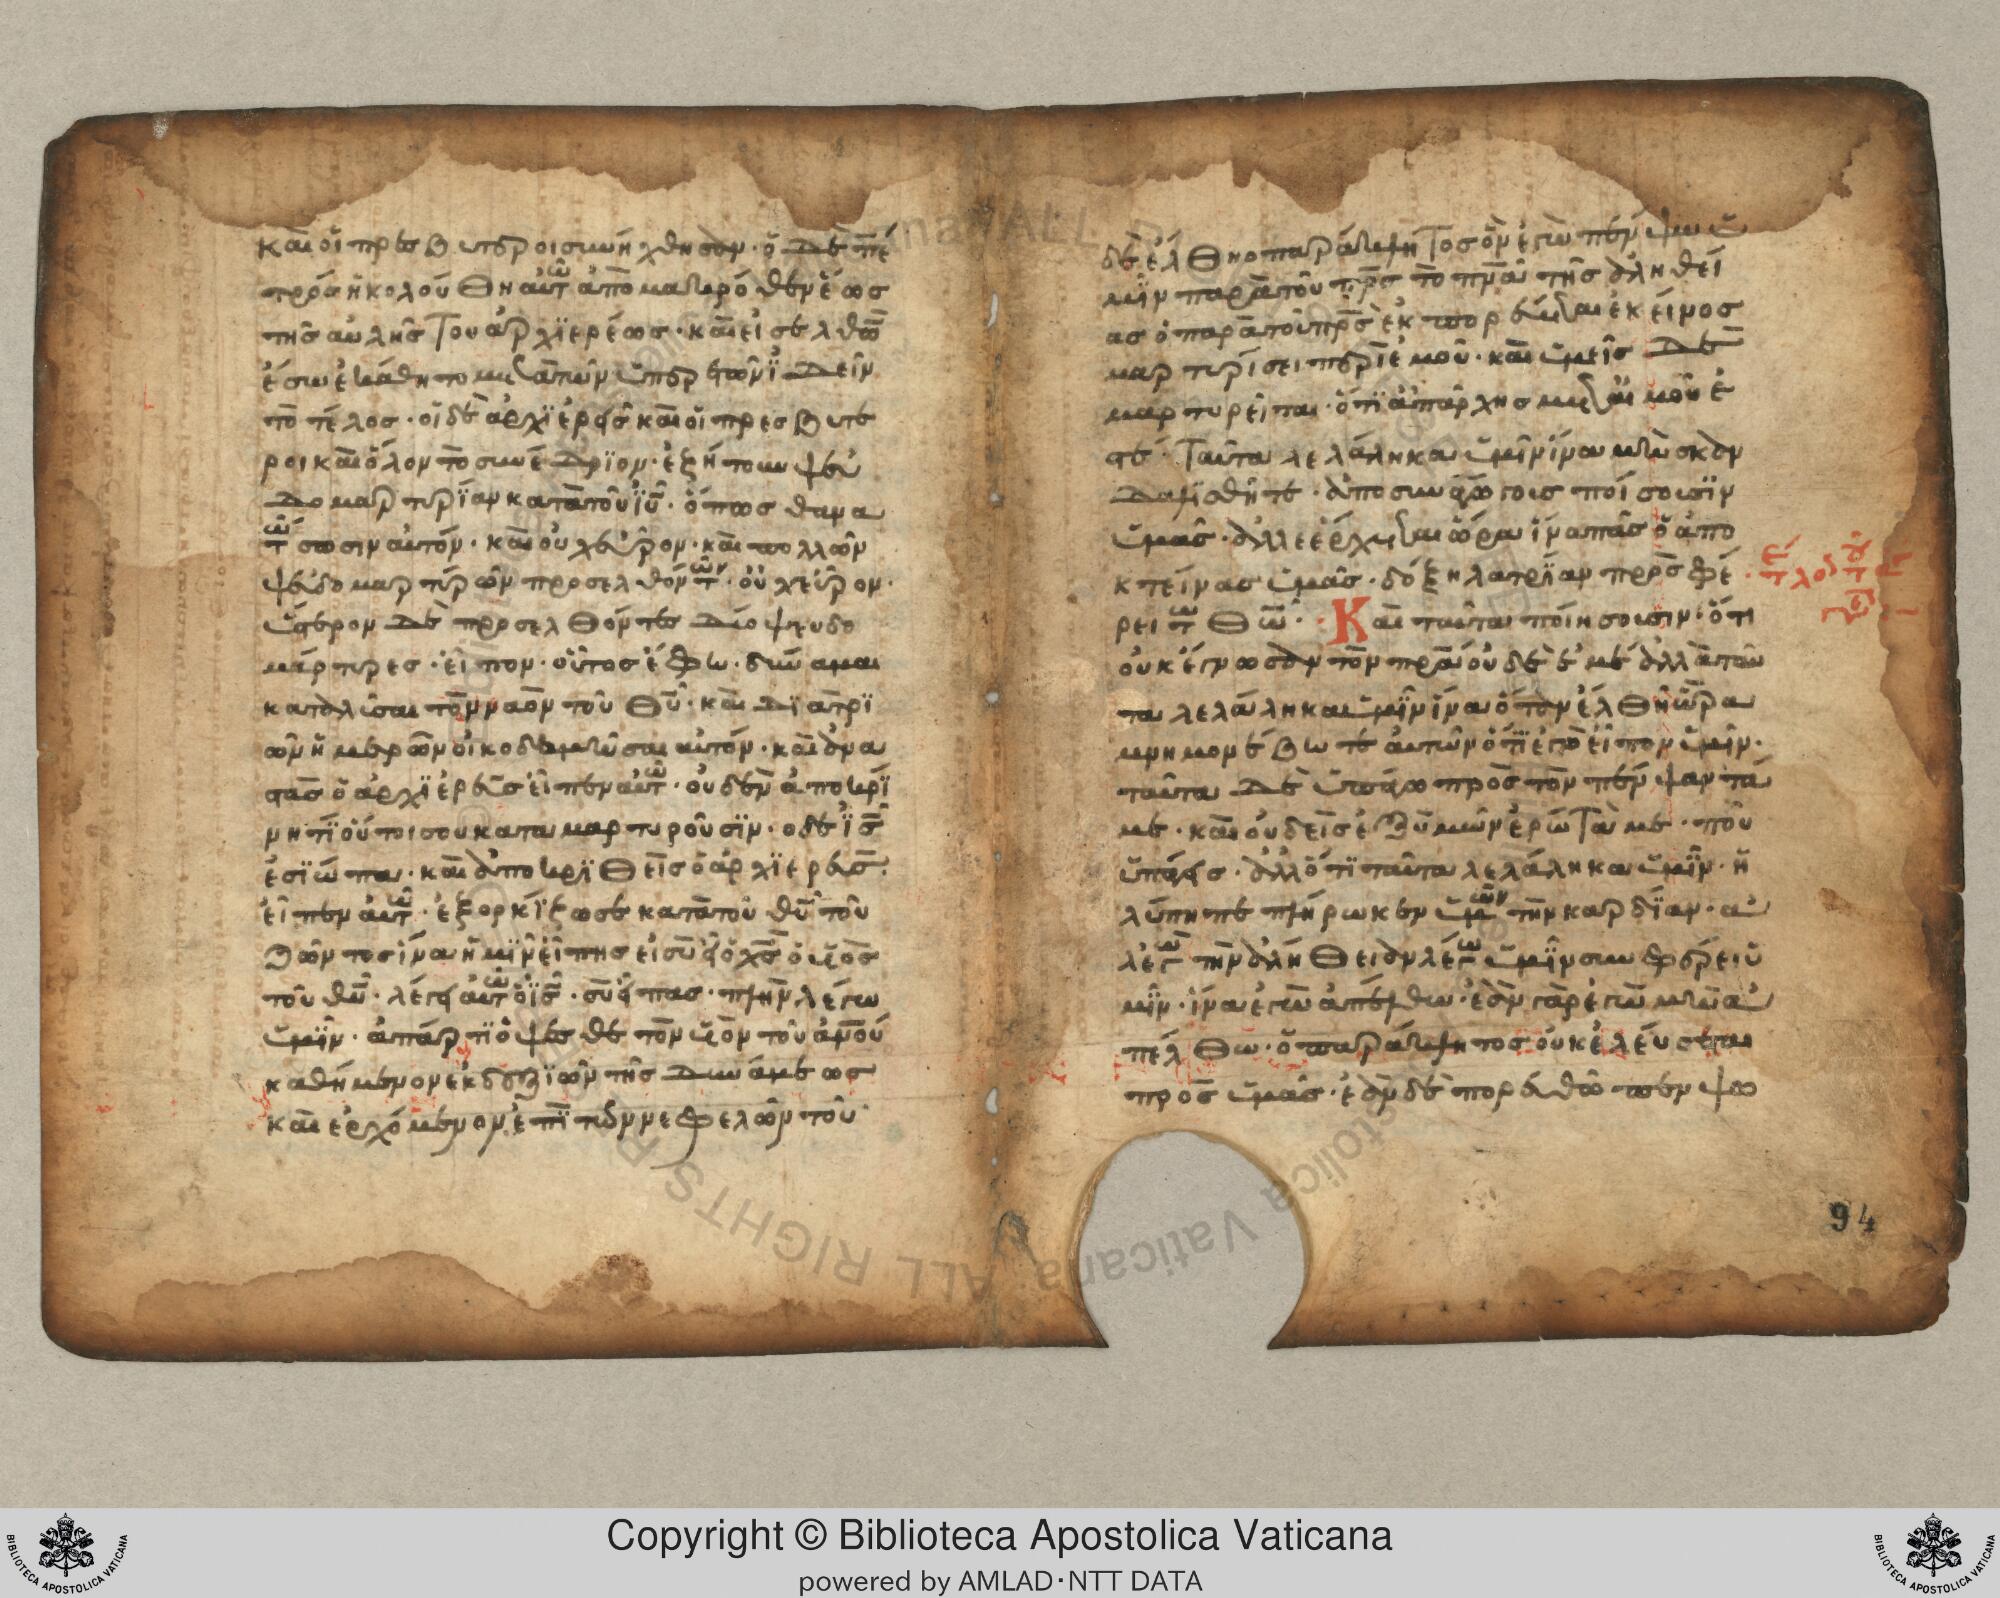 και οἱ πρεσβυτεροι συνήχθησαν· ὁ δὲ πέ
τρος ἠκολούθη αὐτῶ ἀπὸ μακρόθεν ἕως
τῆς αὐλῆς του ἀρχϊερέως· καὶ εἰσελθὼ
ἔσω ἐκάθητο μετὰ τῶν ὑπηρετῶν ϊδεῖν
τὸ τέλος· οἱ δὲ ἀρχϊερεῖς καὶ οἱ πρεσβυτε
ροι καὶ ὅλον τὸ συνέδρϊον· ἐζήτουν ψευ
δομαρτυρϊαν κατὰ τοῦ ιῦ· ὅπως θανα
τώσωσιν αὐτόν· καὶ οὐχ εὗρον· καὶ πολλῶν
ψευδομαρτύρων προσελθόντων· οὐχ εὗρον·
ὕστερον δὲ προσελθόντες δύο ψευδο
μάρτυρες· εἶπον· οὗτος ἔφω· δύναμαι
καταλῦσαι τὸν ναὸν τοῦ θῦ· καὶ δϊα τρϊ
ῶν ἡμερῶν οἰκοδομῆσαι αὐτόν· καὶ ἀνα
στὰς ὁ ἀρχϊερεὺς εἶπεν αὐτῶ· οὐδὲν ἀποκρί
νη τϊ οὗτοι σου καταμαρτυροῦσϊν· ο δὲ ϊς
ἐσϊώπα· καὶ ἀποκρϊθεὶς ὁ ἀρχϊερεὺς
εἶπεν αὐτῶ· ἐξορκίζω σε κατὰ τοῦ θῦ τοῦ
ζῶντος ἵνα ἡμῖν εἴπης εἰ σὺ εἶ ὁ χς ὁ υἱὸς
τοῦ θῦ· λέγει αὐτῶ ὁ ϊς· σὺ εἶπας· πλὴν λέγω
ὑμῖν· ἀπάρτϊ ὄψεσθε τὸν υἱὸν τοῦ ἀνοῦ
καθήμενον ἐκ δεξϊῶν τῆς δυνάμεως
καὶ ἐρχόμενον ἐπὶ τῶν νεφελῶν τοῦ
δὲ ἔλθη ο παράκλητος ὃν ἐγὼ πέμψω ὑ
μῖν παρὰ τοῦ πρς τὸ πνα τῆς ἀληθεί
ας ὁ παρὰ τοῦ πρς ἐκπορεύεται ἐκείνος
μαρτυρίσει περὶ ἐμοῦ· καὶ ὑμεῖς δὲ
μαρτυρεῖται· ὅτϊ ἀπάρχης μεταμοῦ ἐ
στέ· Ταῦτα λελάληκα ὑμῖν ἵνα μὴ σκαν
δαλϊσθῆτε· ἀποσυναγώγοις ποίσουσϊν
ὑμᾶς· ἀλλ ἔρχεται ὥρα ἵνα πᾶς ὁ ἀπο
κτείνας ὑμᾶς· δόξη λατρϊαν προσφέ
ρει τῶ θῶ· Καὶ ταῦτα ποίησουσιν· ὅτι
οὐκ ἔγνωσαν τὸν πρα οὐδὲ ἐμέ ἀλλὰ ταῦ
τα λελάληκα ὑμῖν ἵνα ὅταν ἔλθη ἡ ὥρα
μνημονέβω τε αὐτῶν ὅτϊ ἐγὼ εἶπον ὑμῖν·
ταῦτα δὲ ὑπάγω πρὸς τὸν πέμψαντά
με· καὶ οὐδεὶς ἐξ ὑμῶν ἐρωτὰ με· ποῦ
ὑπάγεις· ἀλλ ὅτϊ ταῦτα λελάληκα ὑμῖν· ἡ
λύπη πεπλήρωκεν ὑμῶν τὴν καρδϊαν· α
λ ἐγὼ τὴν ἀλήθειαν λέγω ὑμῖν συνφέρει ὑ
μῖν· ἵνα ἐγὼ ἀπέλθω· ἐὰν γὰρ ἐγὼ μὴ ἀ
πέλθω· ὁ παράκλητος οὐκ ἐλεύσεται
πρὸς ὑμᾶς· ἐὰν δὲ πορευθῶ πέμψω
94
Copyright © Biblioteca Apostolica Vaticana
powered by AMLAD·NTT DATA
BIBLIOTECA APOSTOLICA VATICANA
BIBLIOTECA APOSTOLICA VATICANA